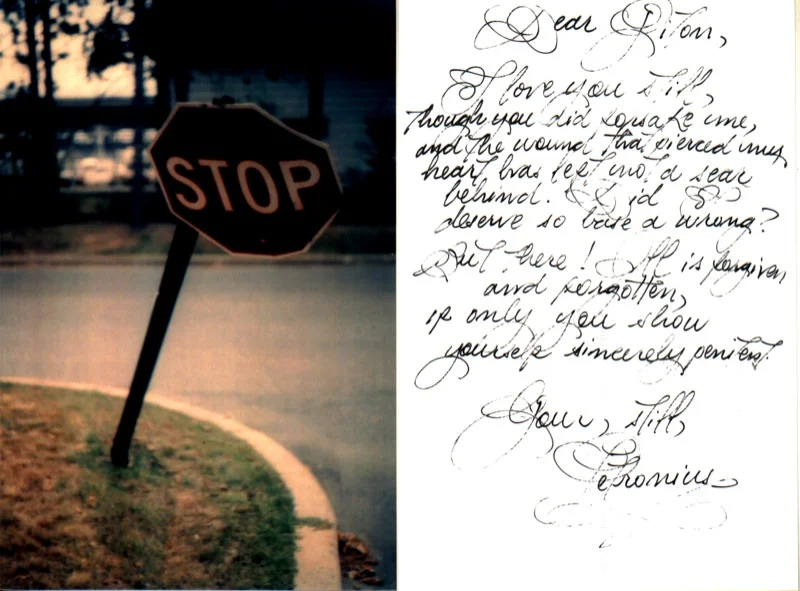 STOP
Dear Giton,
I love you still,
though you did forsake me,
and the wound that pierced my
heart has left not a scar
behind. Did I
deserve so base a wrong?
But here! All is forgiven
and forgotten,
if only you show
yourself sincerely penitent.
Your, still,
Petronius